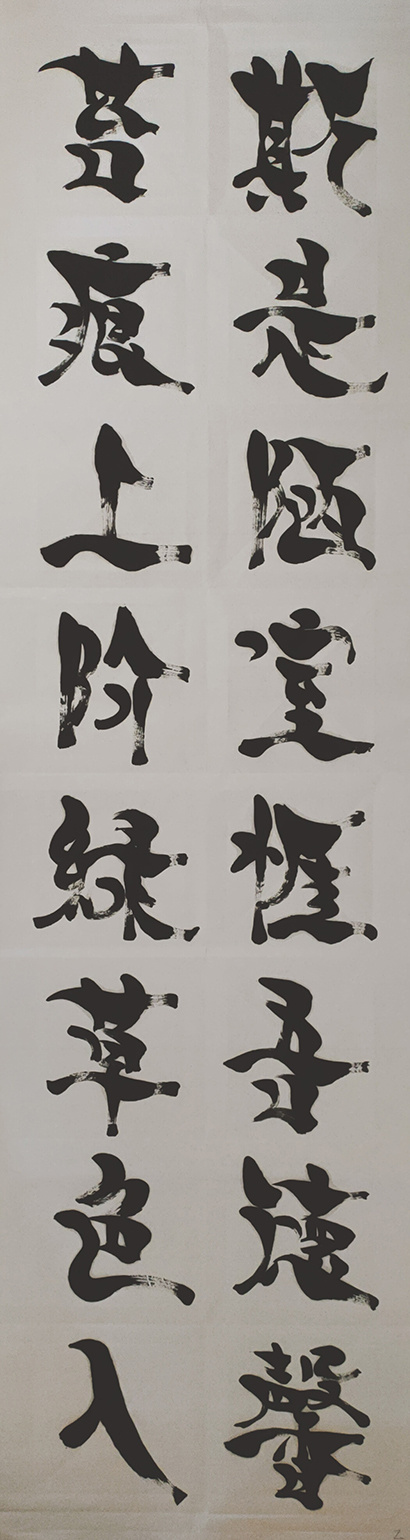 斯是陋室惟吾德馨
苔痕上阶緑草色入